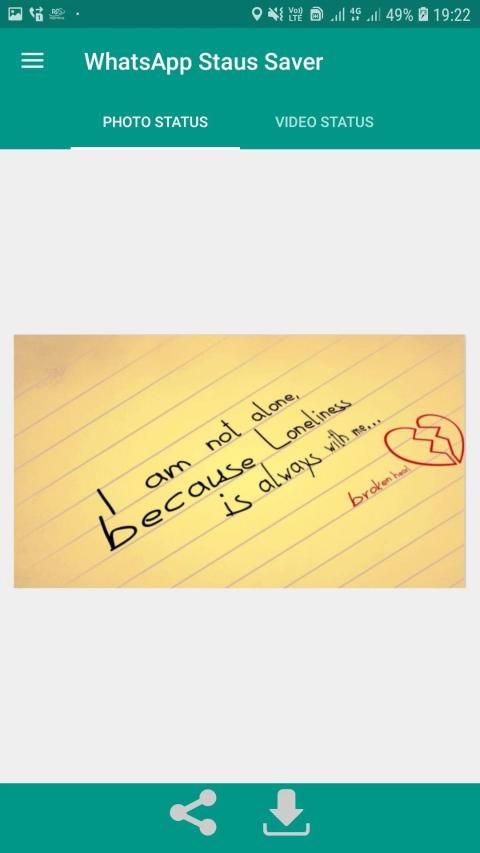 49% 19:22
WhatsApp Staus Saver
PHOTO STATUS VIDEO STATUS
I am not alone,
because Loneliness
is always with me...
broken heart